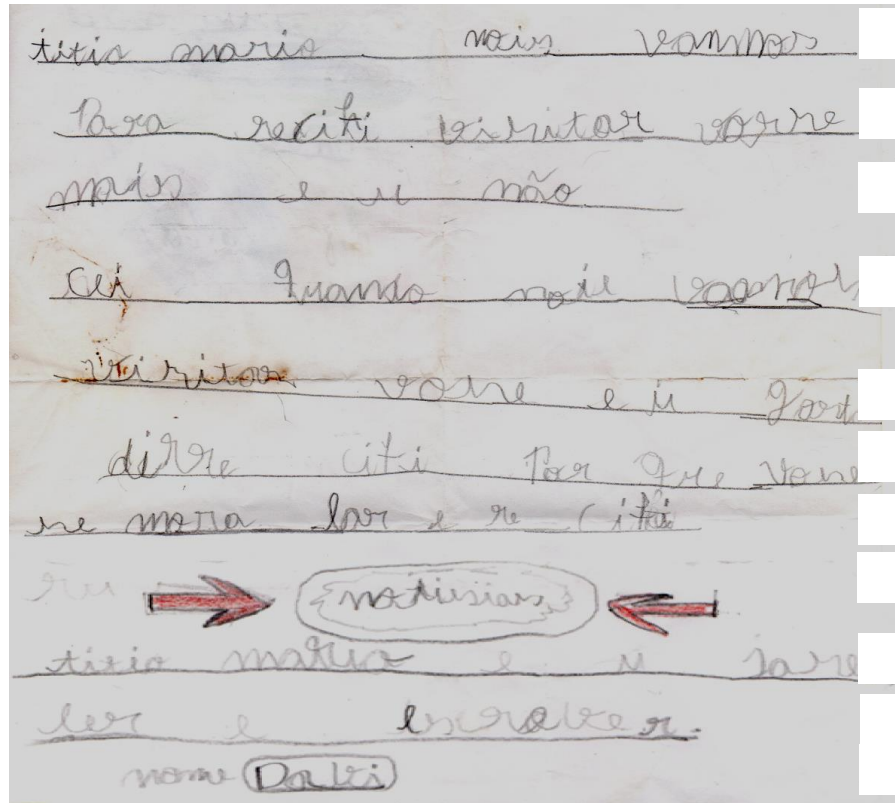 titio mario nois vanmos
Para reciti visitar vosse
mais e u não
cei quando nois vaamos
visitar vose e u gost
disse citi Por que vose
se mora lar e re citi
notisias
titio mario e u sare
ler e escrever.
nome Davi